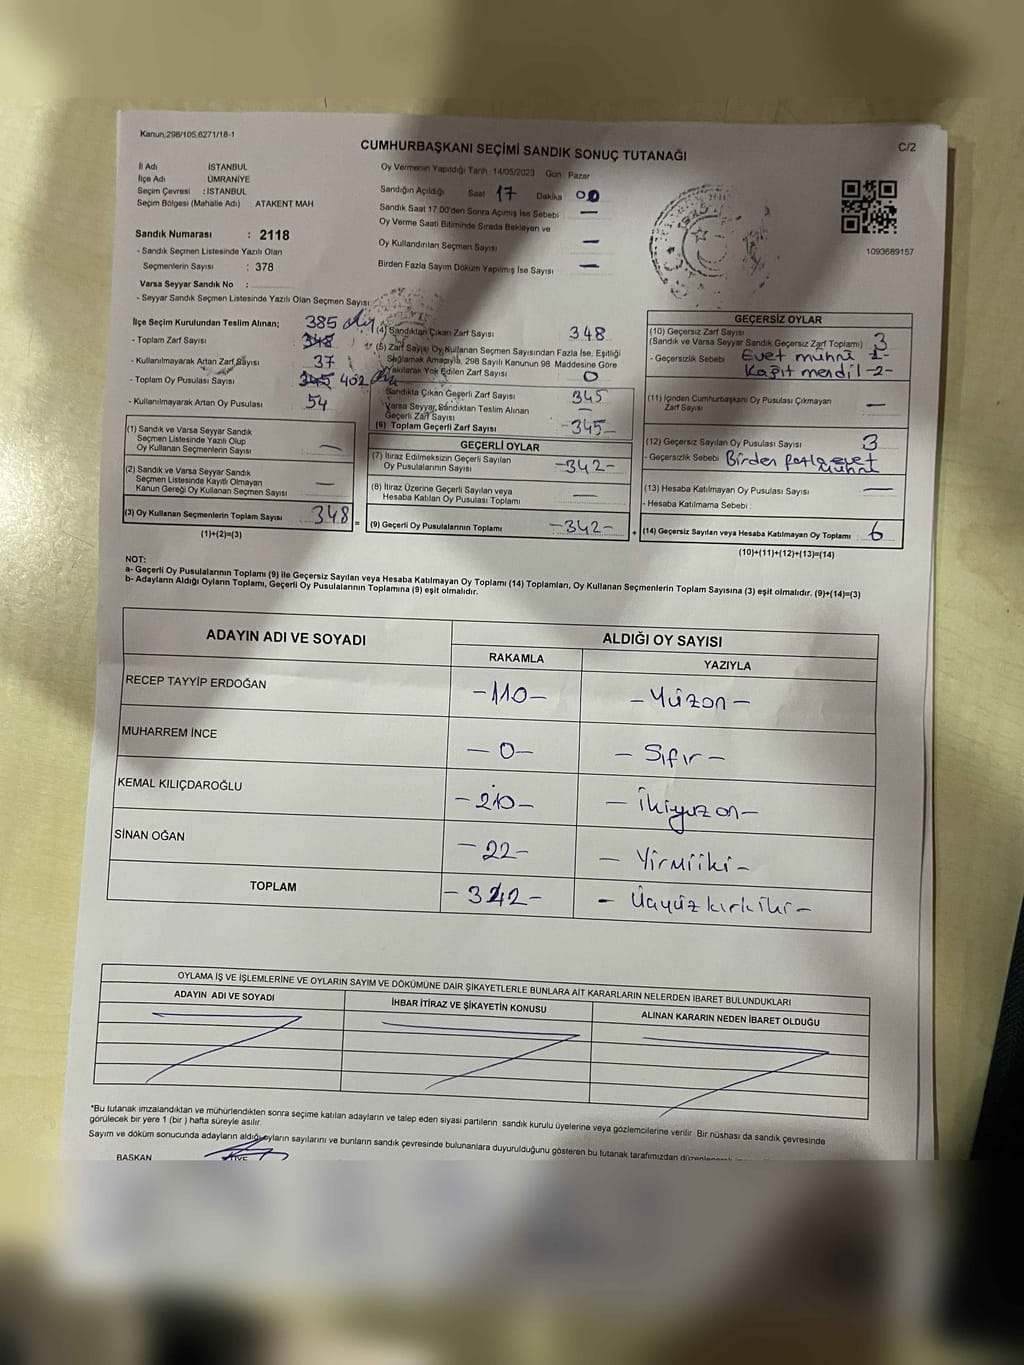 Kanun:298/105.6271/18-1
CUMHURBAŞKANI SEÇİMİ SANDIK SONUÇ TUTANAĞI
C/2
İl Adı İSTANBUL
İlçe Adı ÜMRANİYE
Seçim Çevresi : İSTANBUL
Seçim Bölgesi (Mahalle Adı) : ATAKENT MAH
Sandık Numarası : 2118
- Sandık Seçmen Listesinde Yazılı Olan
Seçmenlerin Sayısı : 378
Varsa Seyyar Sandık No :
- Seyyar Sandık Seçmen Listesinde Yazılı Olan Seçmen Sayısı:
Oy Vermenin Yapıldığı Tarih 14/05/2023 Gün Pazar
Sandığın Açıldığı Saat 17 Dakika 00
Sandık Saat 17.00'den Sonra Açımış İse Sebebi —
Oy Verme Saati Bitiminde Sırada Bekleyen ve
Oy Kullandırılan Seçmen Sayısı —
Birden Fazla Sayım Döküm Yapılmış İse Sayısı —
1093689157
İlçe Seçim Kurulundan Teslim Alınan;
- Toplam Zarf Sayısı 348 385
- Kullanılmayarak Artan Zarf Sayısı 37
- Toplam Oy Pusulası Sayısı 345 402
- Kullanılmayarak Artan Oy Pusulası 54
(1) Sandık ve Varsa Seyyar Sandık
Seçmen Listesinde Yazılı Olup
Oy Kullanan Seçmenlerin Sayısı —
(2) Sandık ve Varsa Seyyar Sandık
Seçmen Listesinde Kayıtlı Olmayan
Kanun Gereği Oy Kullanan Seçmen Sayısı —
(3) Oy Kullanan Seçmenlerin Toplam Sayısı 348
(1)+(2)=(3)
(4) Sandıktan Çıkan Zarf Sayısı 348
(5) Zarf Sayısı Oy Kullanan Seçmen Sayısından Fazla İse, Eşitliği
Sağlamak Amacıyla, 298 Sayılı Kanunun 98. Maddesine Göre
Yakılarak Yok Edilen Zarf Sayısı 0
Sandıkta Çıkan Geçerli Zarf Sayısı 345
Varsa Seyyar Sandıktan Teslim Alınan
Geçerli Zarf Sayısı —
(6) Toplam Geçerli Zarf Sayısı -345-
GEÇERLİ OYLAR
(7) İtiraz Edilmeksizin Geçerli Sayılan
Oy Pusulalarının Sayısı -342-
(8) İtiraz Üzerine Geçerli Sayılan veya
Hesaba Katılan Oy Pusulası Toplamı —
= (9) Geçerli Oy Pusulalarının Toplamı -342-
GEÇERSİZ OYLAR
(10) Geçersiz Zarf Sayısı
(Sandık ve Varsa Seyyar Sandık Geçersiz Zarf Toplamı) 3
- Geçersizlik Sebebi Evet mührü -1-
Kağıt mendil -2-
(11) İçinden Cumhurbaşkanı Oy Pusulası Çıkmayan
Zarf Sayısı —
(12) Geçersiz Sayılan Oy Pusulası Sayısı 3
- Geçersizlik Sebebi Birden fazla evet
mührü
(13) Hesaba Katılmayan Oy Pusulası Sayısı —
- Hesaba Katılmama Sebebi :
+ (14) Geçersiz Sayılan veya Hesaba Katılmayan Oy Toplamı 6
(10)+(11)+(12)+(13)=(14)
NOT:
a- Geçerli Oy Pusulalarının Toplamı (9) ile Geçersiz Sayılan veya Hesaba Katılmayan Oy Toplamı (14) Toplamları, Oy Kullanan Seçmenlerin Toplam Sayısına (3) eşit olmalıdır. (9)+(14)=(3)
b- Adayların Aldığı Oyların Toplamı, Geçerli Oy Pusulalarının Toplamına (9) eşit olmalıdır.
ADAYIN ADI VE SOYADI ALDIĞI OY SAYISI
RAKAMLA YAZIYLA
RECEP TAYYİP ERDOĞAN -110- -Yüzon-
MUHARREM İNCE -0- -Sıfır-
KEMAL KILIÇDAROĞLU -210- -İkiyüzon-
SİNAN OĞAN -22- -Yirmiiki-
TOPLAM -342- -Üçyüzkırkiki-
OYLAMA İŞ VE İŞLEMLERİNE VE OYLARIN SAYIM VE DÖKÜMÜNE DAİR ŞİKAYETLERLE BUNLARA AİT KARARLARIN NELERDEN İBARET BULUNDUKLARI
ADAYIN ADI VE SOYADI İHBAR İTİRAZ VE ŞİKAYETİN KONUSU ALINAN KARARIN NEDEN İBARET OLDUĞU
*Bu tutanak imzalandıktan ve mühürlendikten sonra seçime katılan adayların ve talep eden siyasi partilerin sandık kurulu üyelerine veya gözlemcilerine verilir. Bir nüshası da sandık çevresinde
görülecek bir yere 1 (bir) hafta süreyle asılır.
Sayım ve döküm sonucunda adayların aldığı oyların sayılarını ve bunların sandık çevresinde bulunanlara duyurulduğunu gösteren bu tutanak tarafımızdan
BAŞKAN